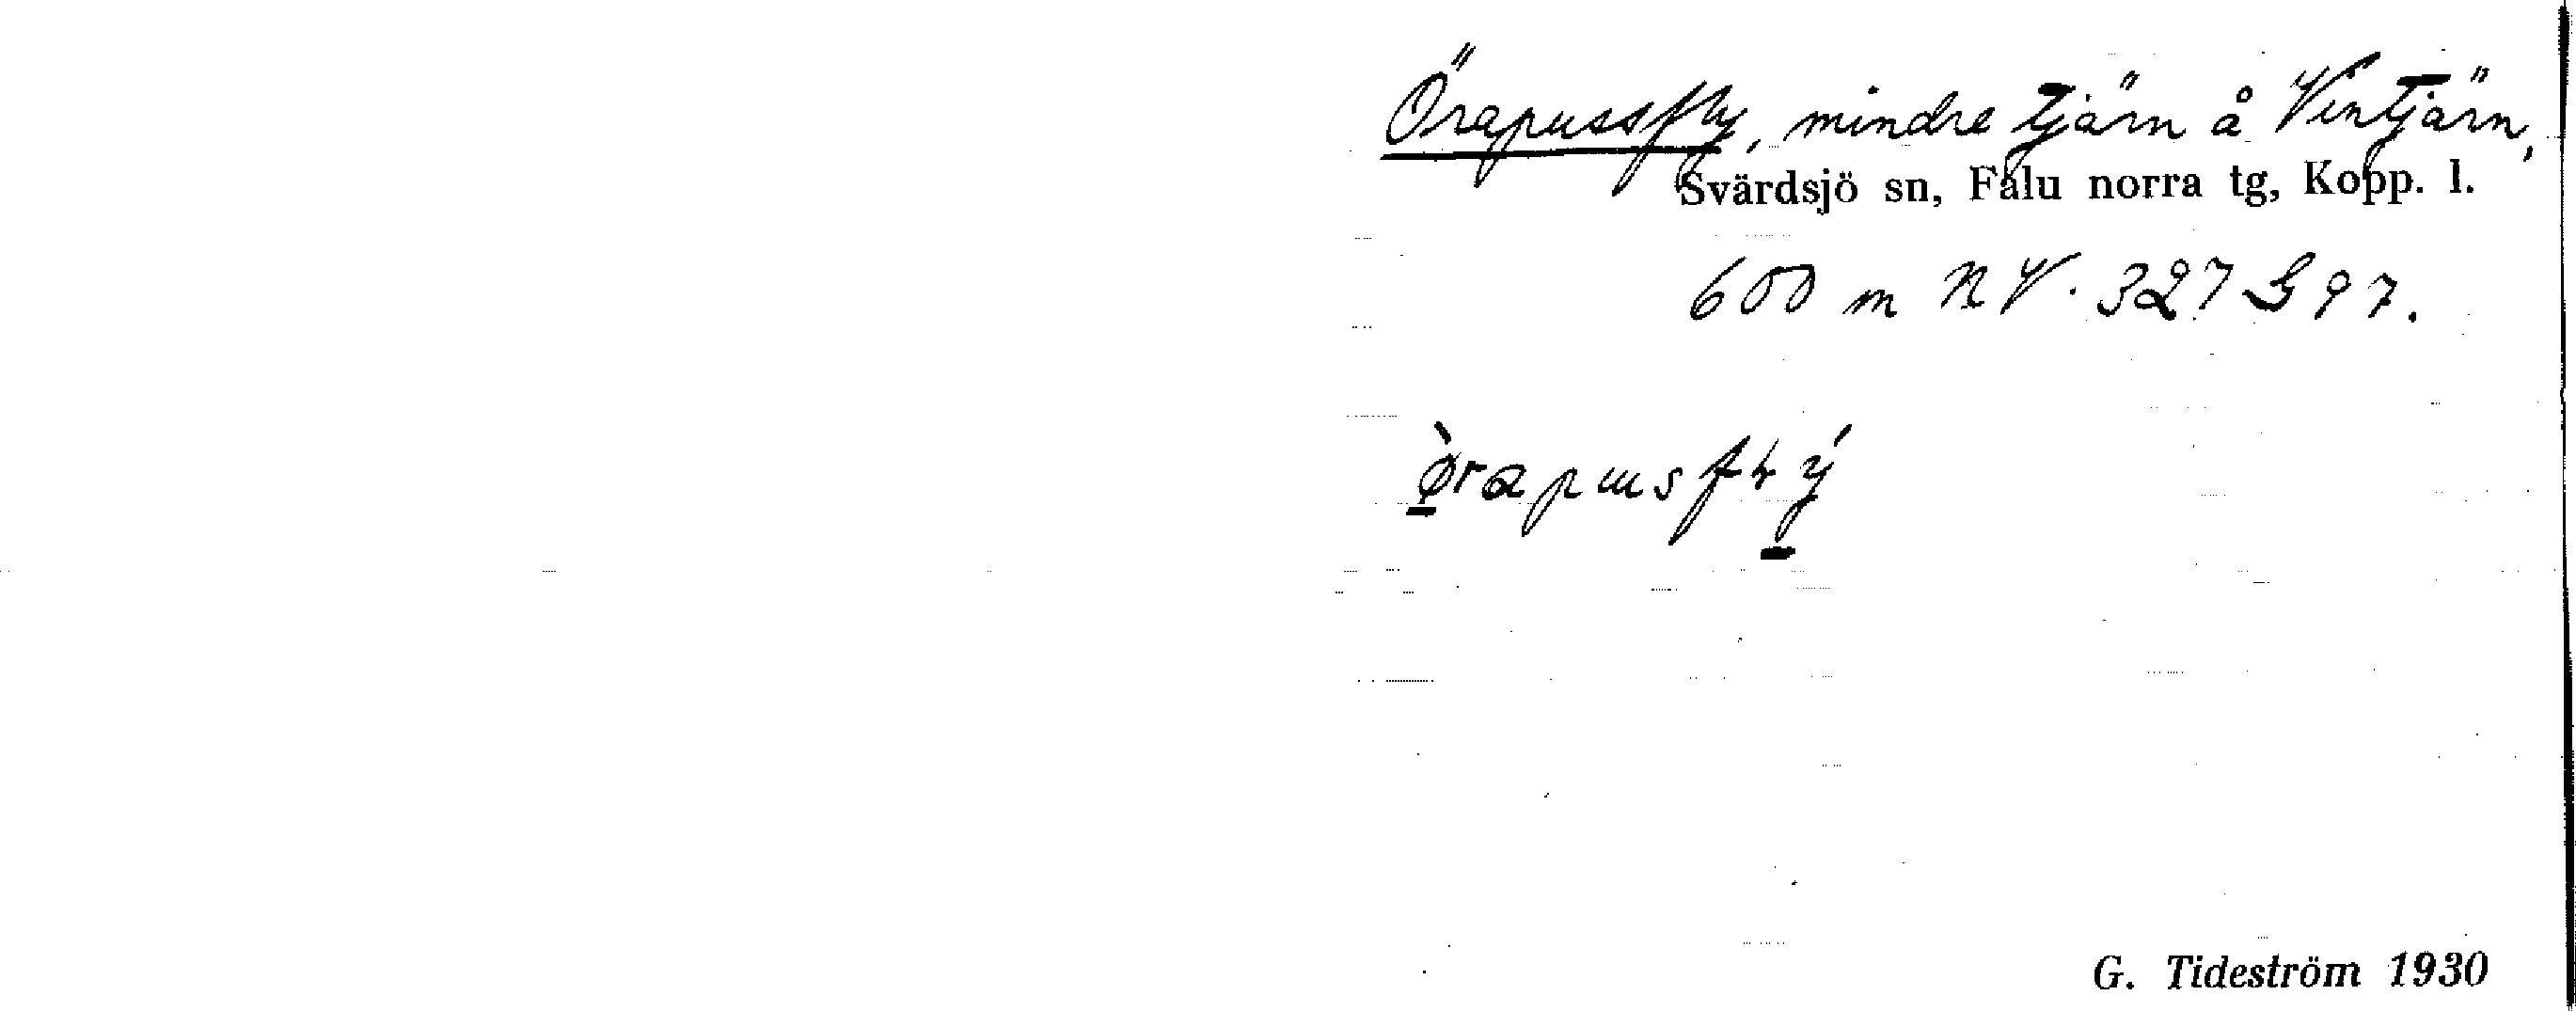 Örapussfly, mindre tjärn å Vintjärn,
Svärdsjö sn, Falu norra tg, Kopp. l.
600 m NV. 327 G 97.
G. Tideström 1930